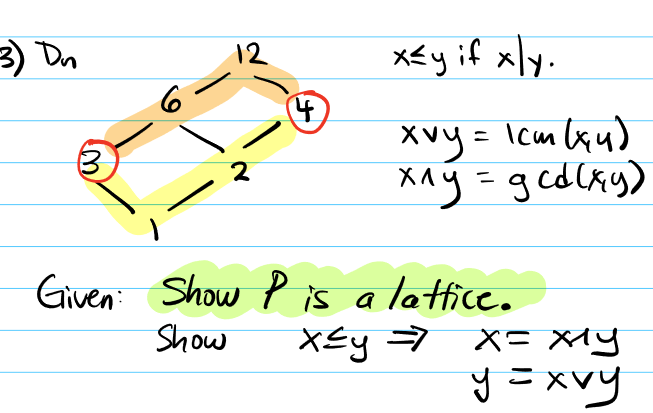 3) Dn 12 x≤y if x|y.
6 4
x∨y = lcm(x,y)
3 2 x∧y = gcd(x,y)
1
Given: Show P is a lattice.
Show x≤y ⇒ x = x∧y
y = x∨y